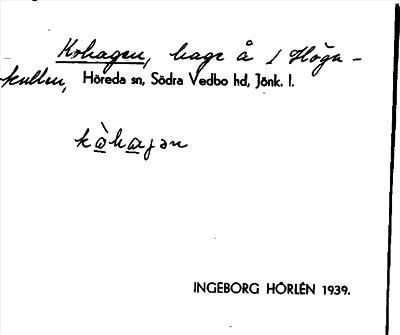 Kohagen, hage å 1 Höga-
kullen, Höreda sn, Södra Vedbo hd, Jönk. l.
kòhagən
INGEBORG HÖRLÉN 1939.